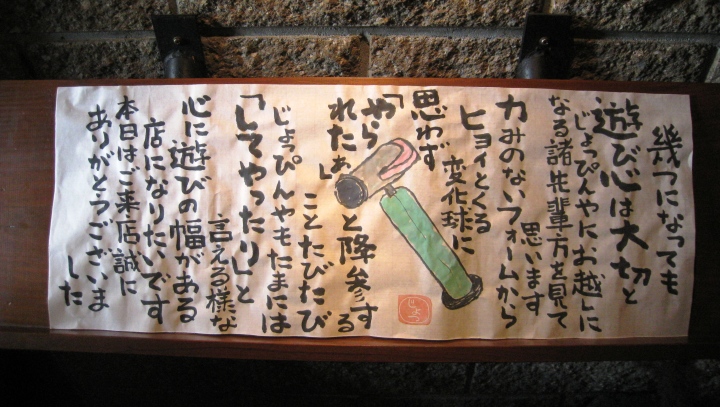 幾つになっても
遊び心は大切と
じょっぴんやにお越しに
なる諸先輩方を見て
思います
力みのないフォームから
ヒョイとくる
変化球に
思わず
「やら
れたぁ」
と降参する
ことたびたび
じょっぴんやもたまには
「してやったり」と
言える様な
心に遊びの幅がある
店になりたいです
本日はご来店誠に
ありがとうございま
した